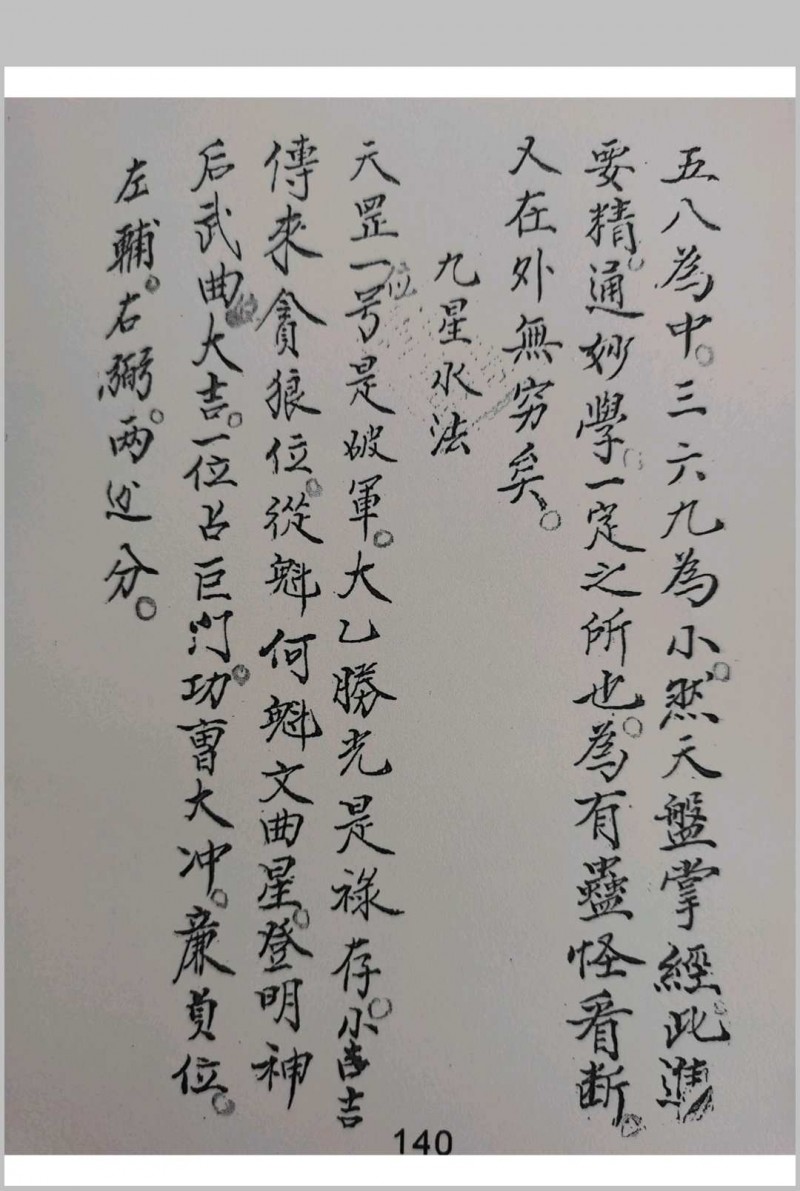 五八為中。三六九為小。然天盤掌經此進
要精。通妙學。一定之所也。為有蠱怪看断。
又在外無穷矣。
九星水法
天罡一号是破軍。大乙勝光是祿存。小吉
位
傳來貪狼位。從魁何魁文曲星。登明神
后武曲大吉。一位占巨门。功曹大冲。廉貞位。
左輔。右弼。两边分。
140